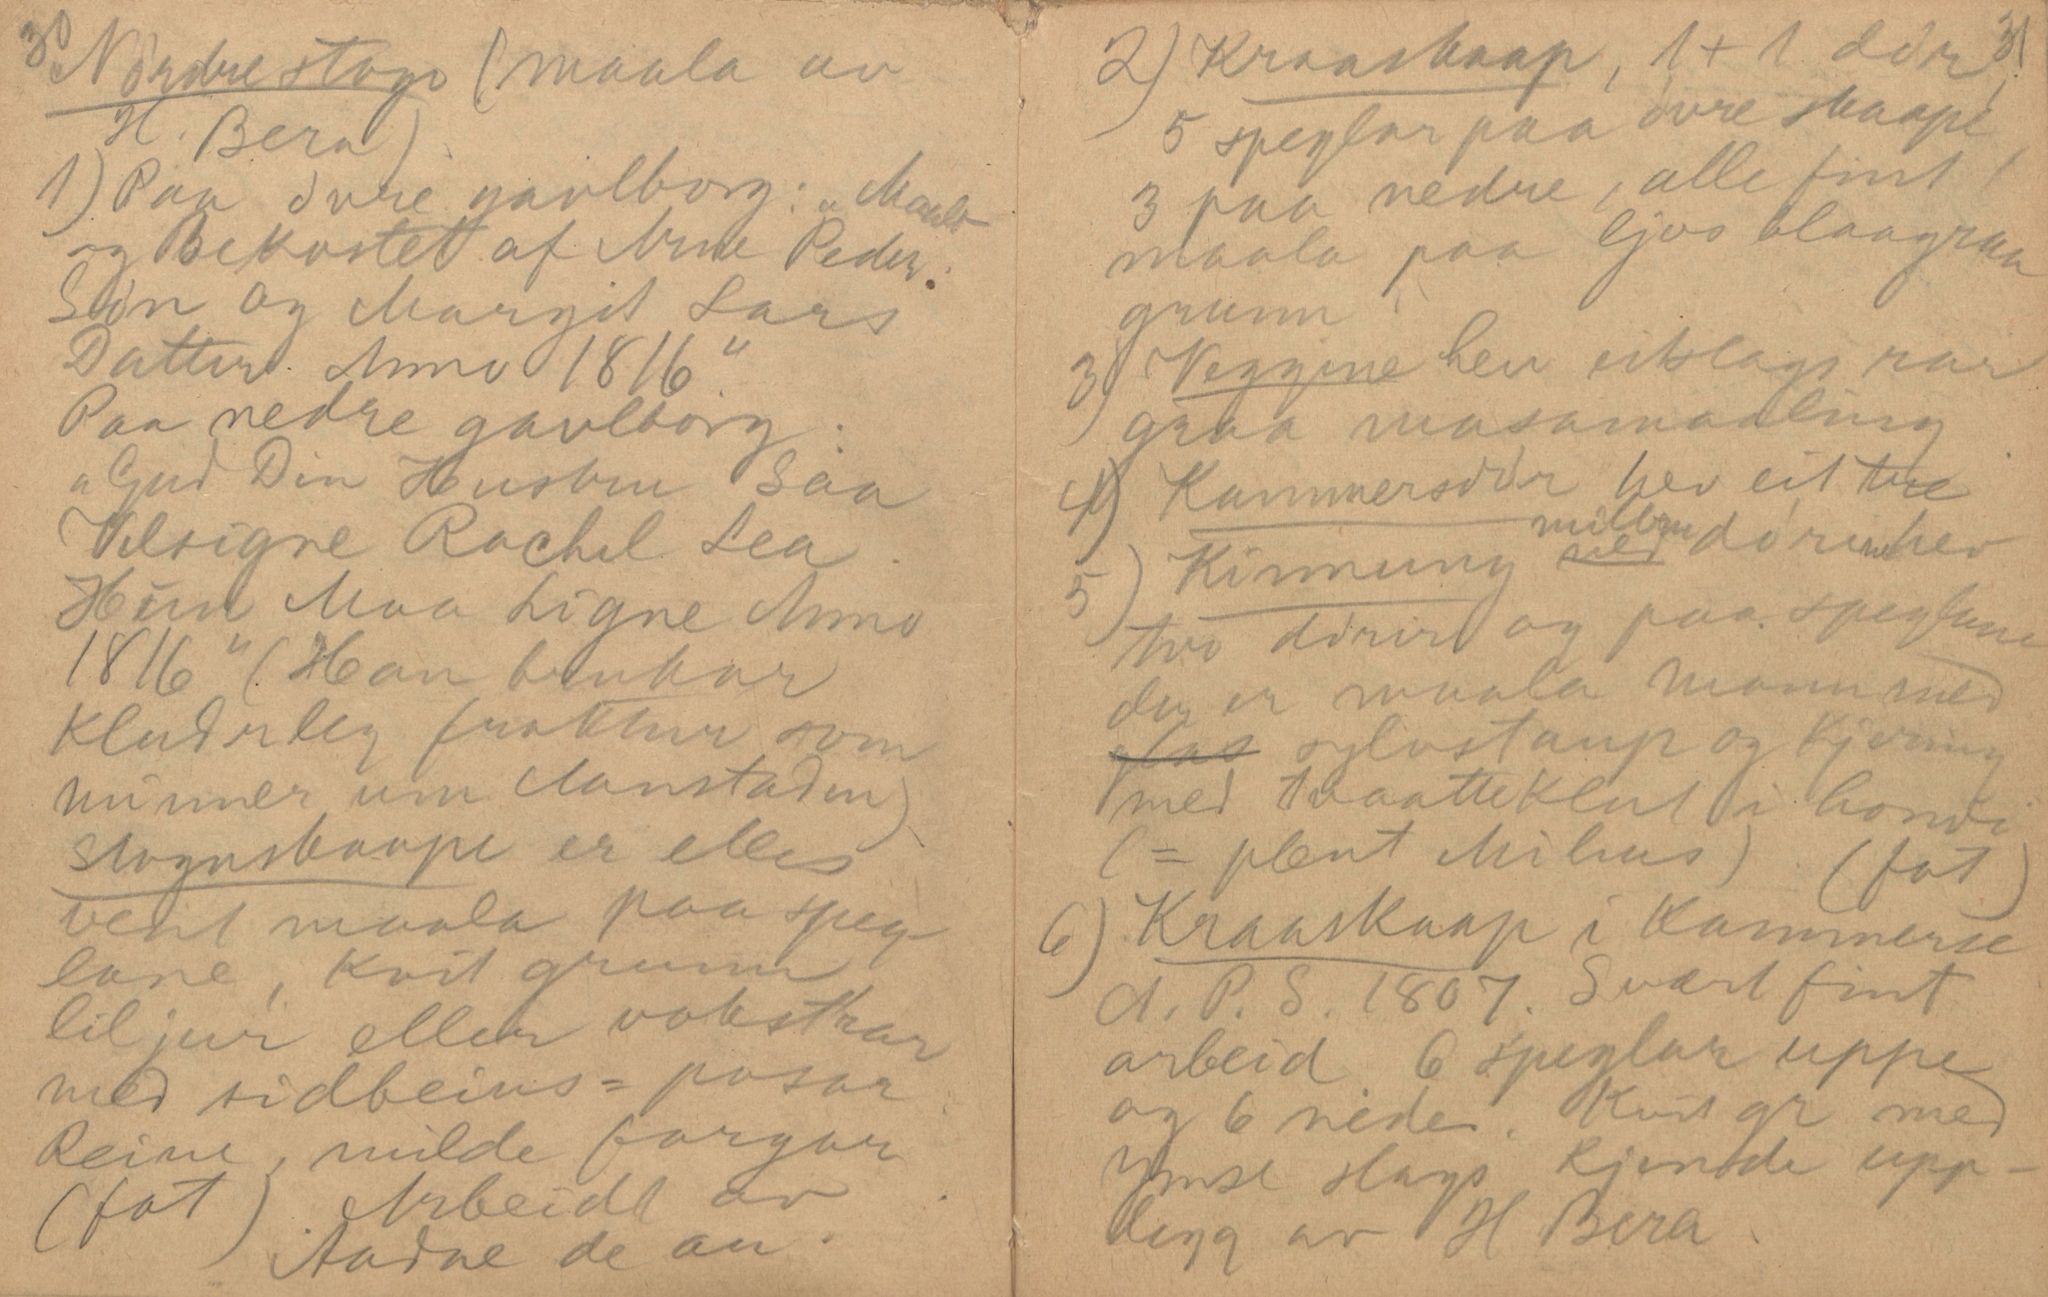 30
Nördre stogo (maala av
H. Bera)
1) Paa övre gavlborg: "Malet
og Bekostet af Arne Peder.
Sön og Margit Lars
Datter Anno 1816"
Paa nedre gavlborg:
"Gud Din Hustru Saa
Velsigne Rachel Lea
Hun Maa Ligne Anno
1816" (Han brukar
kludrleg fraktur som
minner um Aanstadin)
Stoguskaape er elles
veent maala paa speg-
lane, kvit grunn
liljur eller vokstrar
med sidbeins=posar.
Reine, milde fargar
(fot ) Arbeidt av
Aadne de au.
31
2) Kraaskaap, 1 + 1 dör,
5 speglar paa övre skaape,
3 paa nedre, alle fint
maala paa ljos blaagraa
grunn
3) Veggine hev eitslags rar
graa masamaaling
4) Kammersdör hev eit tre
5) Kinnung millom dörine hev
tvo dörir og paa speglane
der er maala mann med
glas sylvstaup og kjering
med tvaatteklut i hondi
(= plent Milus) (fot )
6) Kraaskaap i Kammerse
A. P. S. 1807. Svært fint
arbeid 6 speglar uppe
og 6 nede. Kvit gr med
ymse slags kjende upp-
legg av H Bera